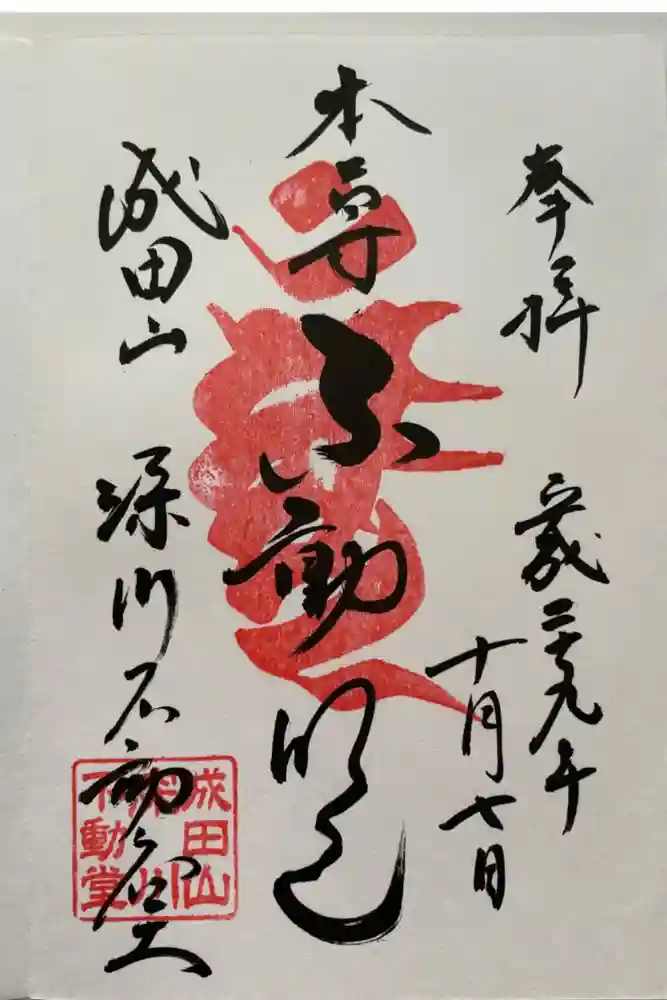 奉拝
平成二十九年
十月七日
本尊不動明王
成田山
深川不動堂
成田山
深川
不動堂